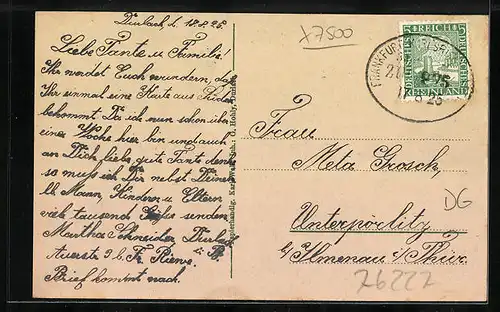 Durlach, d. 17.8.25.
Liebe Tante u Familie!
Ihr werdet Euch wundern, daß
Ihr einmal eine Karte aus
bekommt. Da ich nun schon über
einer Woche hier bin und auch
an Dich, liebe, gute Tant denke
so muß ich Dir nebst Deinem
ll Mann, Kindern u Eltern
viele tausend Grüße senden
Martha Schneider, Durlach
Auerstr. 9 b. Fr.
Brief kommt nach.
x7500
FRANKFURT
DEUTSCHES REICH
RHEINLAND
Frau
Meta Grosch,
Unterpörlitz
b/ Ilmenau i/ Thür.
DG
76222